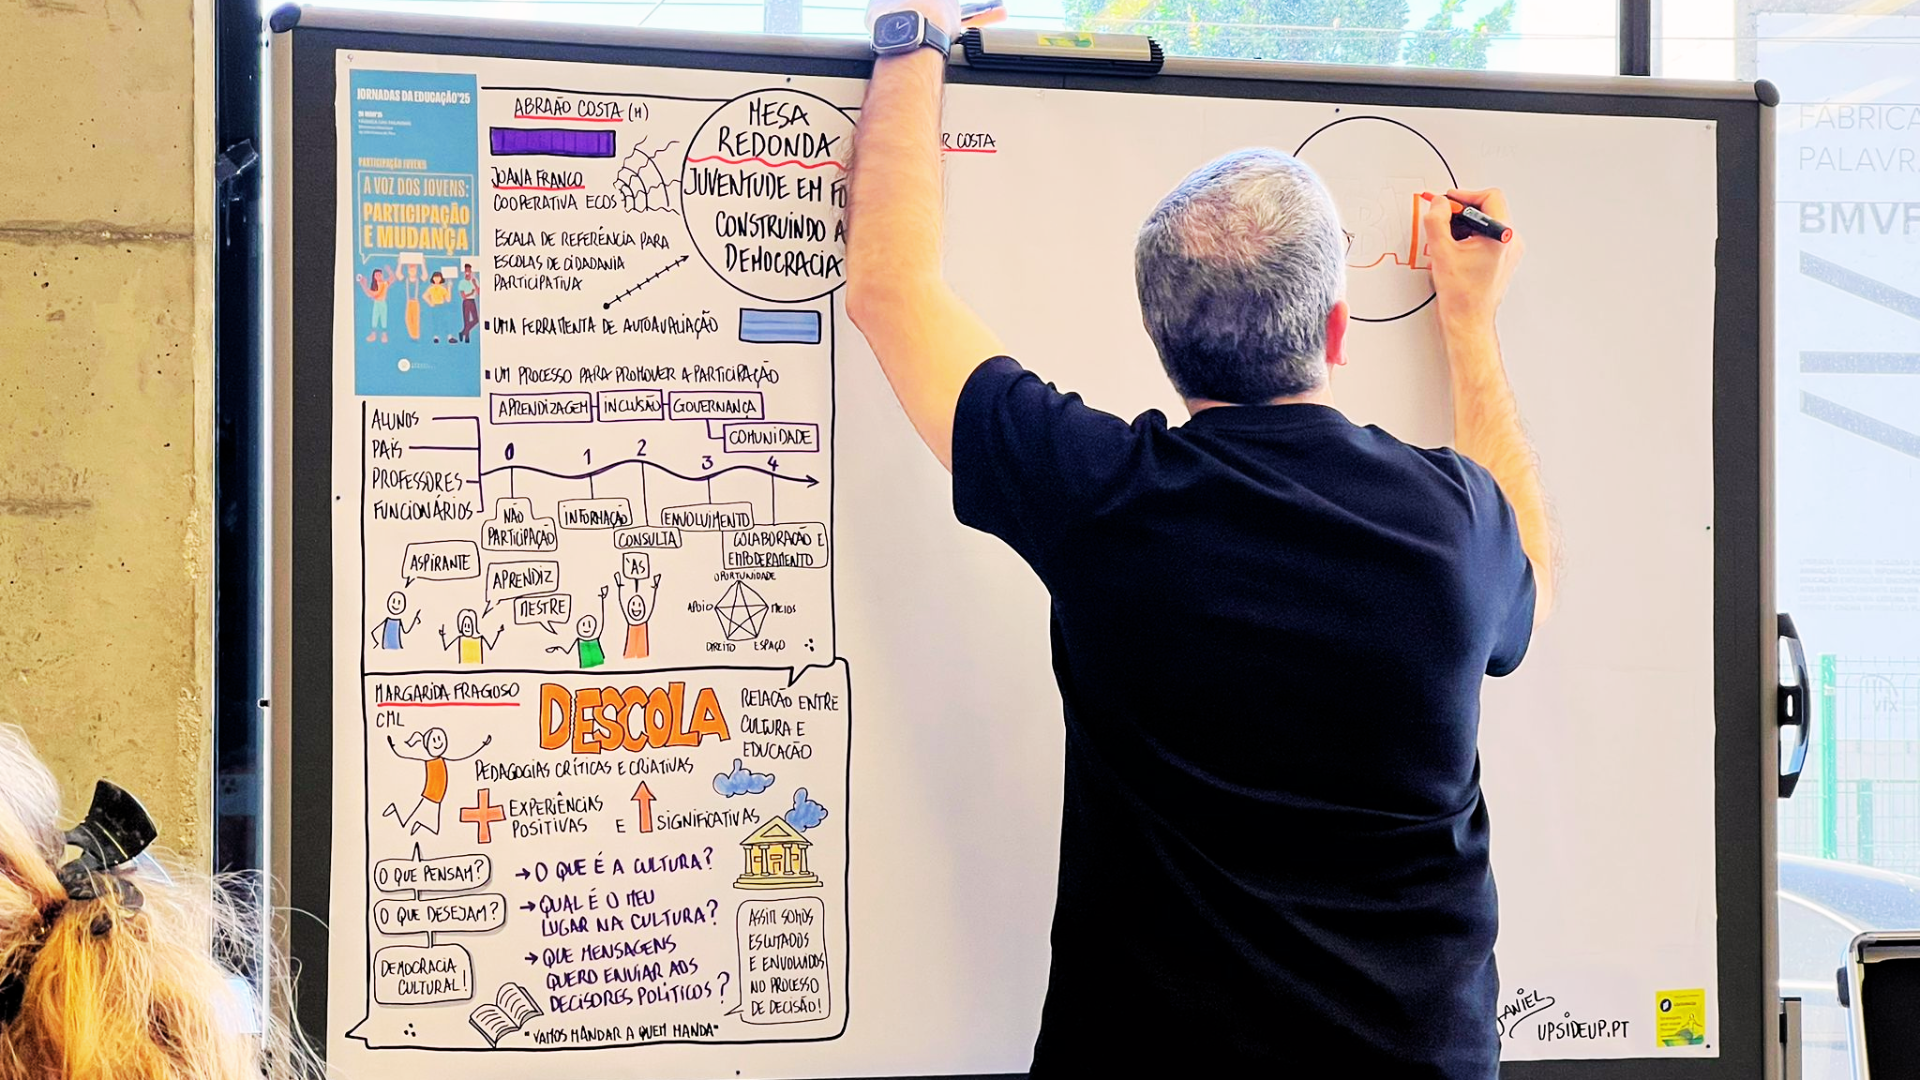 JORNADAS DA EDUCAÇÃO'25
PARTICIPAÇÃO JUVENIL
A VOZ DOS JOVENS:
PARTICIPAÇÃO
E MUDANÇA
ABRAÃO COSTA (M)
JOANA FRANCO
COOPERATIVA ECOS
MESA
REDONDA
JUVENTUDE EM
CONSTRUINDO A
DEMOCRACIA
ESCALA DE REFERÊNCIA PARA
ESCOLAS DE CIDADANIA
PARTICIPATIVA
UMA FERRAMENTA DE AUTOAVALIAÇÃO
UM PROCESSO PARA PROMOVER A PARTICIPAÇÃO
APRENDIZAGEM INCLUSÃO GOVERNANÇA
COMUNIDADE
ALUNOS
PAIS
PROFESSORES
FUNCIONÁRIOS
0 1 2 3 4
NÃO
PARTICIPAÇÃO
INFORMAÇÃO
CONSULTA
ENVOLVIMENTO
COLABORAÇÃO E
EMPODERAMENTO
ASPIRANTE
APRENDIZ
MESTRE
'AS
OPORTUNIDADE
APOIO
MEIOS
DIREITO
ESPAÇO
MARGARIDA FRAGOSO
CML
DESCOLA
RELAÇÃO ENTRE
CULTURA E
EDUCAÇÃO
PEDAGOGIAS CRÍTICAS E CRIATIVAS
+ EXPERIÊNCIAS
POSITIVAS E SIGNIFICATIVAS
O QUE PENSAM?
O QUE DESEJAM?
DEMOCRACIA
CULTURAL!
→ O QUE É A CULTURA?
→ QUAL É O MEU
LUGAR NA CULTURA?
→ QUE MENSAGENS
QUERO ENVIAR AOS
DECISORES POLÍTICOS?
ASSIM SOMOS
ESCUTADOS
E ENVOLVIDOS
NO PROCESSO
DE DECISÃO!
"VAMOS MANDAR A QUEM MANDA"
R COSTA
DANIEL
UPSIDEUP.PT
FÁBRICA
PALAVR
BMVF